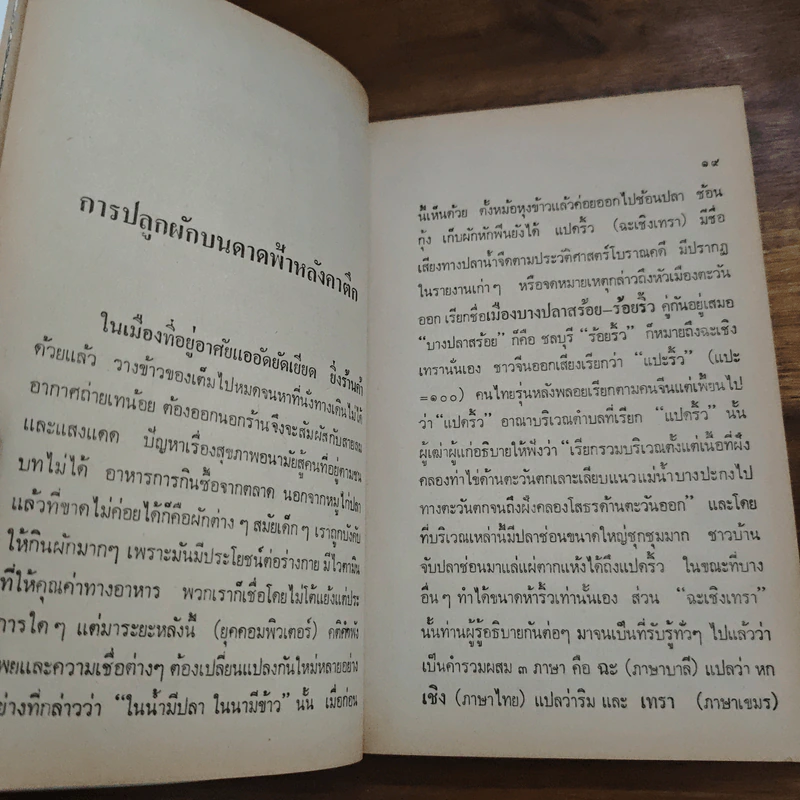 การปลูกผักบนดาดฟ้าหลังคาตึก
ในเมืองที่อยู่อาศัยแออัดยัดเยียด ยิ่งร้านค้า
ด้วยแล้ว วางข้าวของเต็มไปหมดจนหาที่นั่งทางเดินไม่ได้
อากาศถ่ายเทน้อย ต้องออกนอกร้านจึงจะสัมผัสกับสายลม
และแสงแดด ปัญหาเรื่องสุขภาพอนามัยสู้คนที่อยู่ตามชน
บทไม่ได้ อาหารการกินซื้อจากตลาด นอกจากหมูไก่ปลา
แล้วที่ขาดไม่ค่อยได้ก็คือผักต่าง ๆ สมัยเด็ก ๆ เราถูกบังคับ
ให้กินผักมากๆ เพราะมันมีประโยชน์ต่อร่างกาย มีไวตามิน
ที่ให้คุณค่าทางอาหาร พวกเราก็เชื่อโดยไม่โต้แย้งแต่ประ
การใด ๆ แต่มาระยะหลังนี้ (ยุคคอมพิวเตอร์) คติที่
และความเชื่อต่างๆ ต้องเปลี่ยนแปลงกันใหม่หลายอย่าง
ย่างที่กล่าวว่า “ในน้ำมีปลา ในนามีข้าว” นั้น เมื่อก่อน
๑๙
นี้เห็นด้วย ตั้งหม้อหุงข้าวแล้วค่อยออกไปช้อนปลา ช้อน
กุ้ง เก็บผักหักฟืนยังได้ แปดริ้ว (ฉะเชิงเทรา) มีชื่อ
เสียงทางปลาน้ำจืดตามประวัติศาสตร์โบราณคดี มีปรากฏ
ในรายงานเก่า ๆ หรือจดหมายเหตุกล่าวถึงหัวเมืองตะวัน
ออก เรียกชื่อเมืองบางปลาสร้อย–ร้อยริ้ว คู่กันอยู่เสมอ
“บางปลาสร้อย” ก็คือ ชลบุรี “ร้อยริ้ว” ก็หมายถึงฉะเชิง
เทรานั่นเอง ชาวจีนออกเสียงเรียกว่า “แปะริ้ว” (แปะ
=๑๐๐) คนไทยรุ่นหลังพลอยเรียกตามคนจีนแต่เพี้ยนไป
ว่า “แปดริ้ว” อาณาบริเวณตำบลที่เรียก “แปดริ้ว” นั้น
ผู้เฒ่าผู้แก่อธิบายให้ฟังว่า “เรียกรวมบริเวณตั้งแต่เนื้อที่ฝั่ง
คลองท่าไข่ด้านตะวันตกเลาะเลียบแนวแม่น้ำบางปะกงไป
ทางตะวันตกจนถึงฝั่งคลองโสธรด้านตะวันออก” และโดย
ที่บริเวณเหล่านี้มีปลาช่อนขนาดใหญ่ชุกชุมมาก ชาวบ้าน
จับปลาช่อนมาแล่แผ่ตากแห้งได้ถึงแปดริ้ว ในขณะที่บาง
อื่นๆ ทำได้ขนาดห้าริ้วเท่านั้นเอง ส่วน “ฉะเชิงเทรา”
นั้นท่านผู้รู้อธิบายกันต่อๆ มาจนเป็นที่รับรู้ทั่วๆ ไปแล้วว่า
เป็นคำรวมผสม ๓ ภาษา คือ ฉะ (ภาษาบาลี) แปลว่า หก
เชิง (ภาษาไทย) แปลว่าริม และ เทรา (ภาษาเขมร)